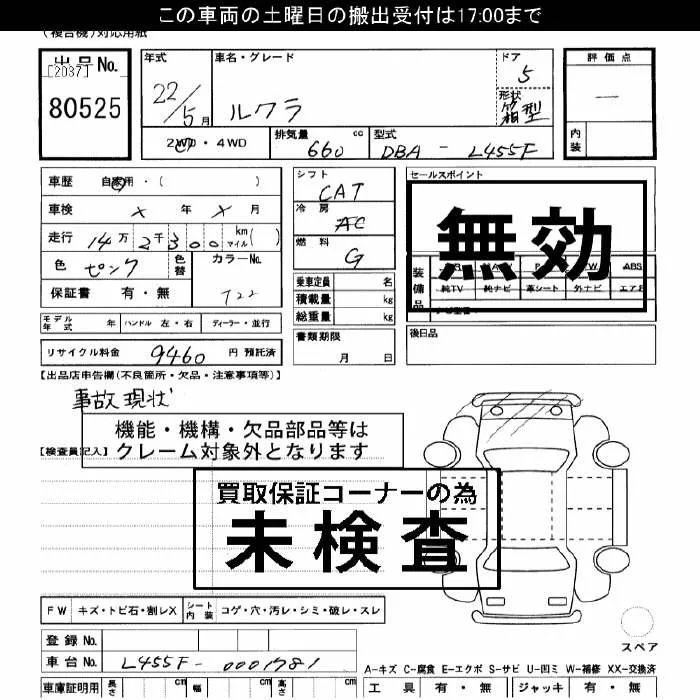 この車両の土曜日の搬出受付は17:00まで
(複合機)対応用紙
出品No.
[2037]
80525
年式
22/5月
車名・グレード
ルクラ
ドア
5
形状
箱型
評価点
—
内装
2WD・4WD
排気量 cc
660
型式
DBA - L455F
車歴 自家用・( )
車検 X 年 X 月
走行 14万 2千 300 km マイル( )
色 ピンク 色替
カラーNo.
T22
保証書 有・無
モデル年式 年 ハンドル 左・右 ディーラー・並行
リサイクル料金 9460 円 預託済
シフト
CAT
冷房
AC
燃料
G
乗車定員 名
積載量 kg
総重量 kg
書類期限
月 日
セールスポイント
無効
装備品
ABS
純TV 純ナビ 革シート 外ナビ エアB
後日品
【出品店申告欄(不良箇所・欠品・注意事項等)】
事故現状
機能・機構・欠品部品等は
クレーム対象外となります
【検査員記入】
買取保証コーナーの為
未検査
FW キズ・トビ石・割レX シート内装 コゲ・穴・汚レ・シミ・破レ・スレ
登録No.
車台No. L455F-0001781
車庫証明用 長さ cm 幅 cm 高さ cm
スペア
A-キズ C-腐食 E-エクボ S-サビ U-凹ミ W-補修 XX-交換済
工具 有・無 ジャッキ 有・無